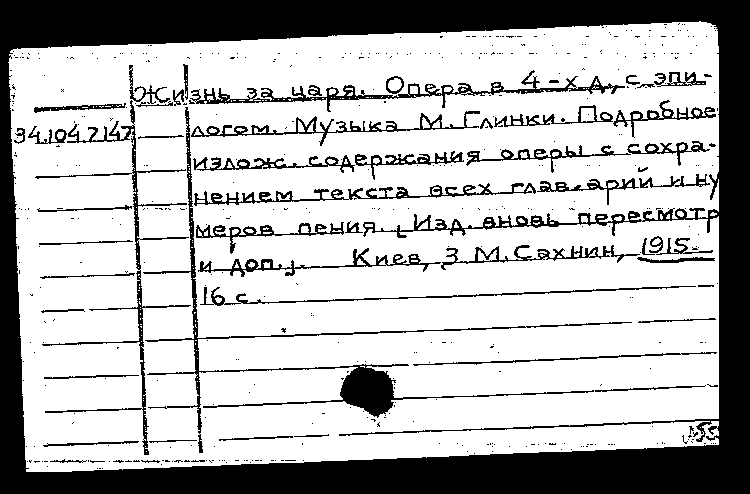 Жизнь за царя. Опера в 4-х д., с эпи-
34.104.7147 логом. Музыка М. Глинки. Подробное
излож. содержания оперы с сохра-
нением текста всех глав. арий и ну
меров пения. [Изд. вновь пересмотр
и доп.]. Киев, З. М. Сахнин, 1915.
16 с.